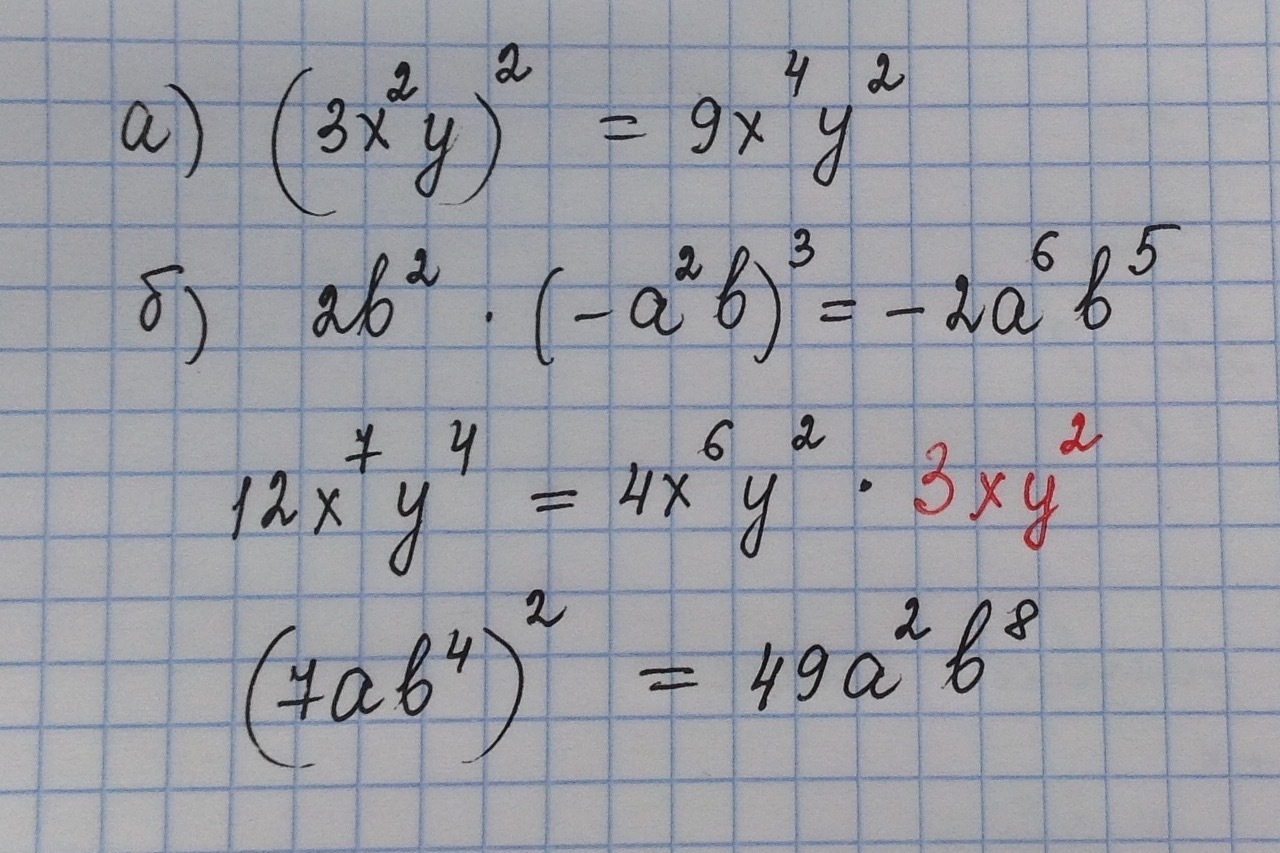 а) (3x²y)² = 9x⁴y²
б) 2b² · (-a²b)³ = -2a⁶b⁵
12x⁷y⁴ = 4x⁶y² · 3xy²
(7ab⁴)² = 49a²b⁸